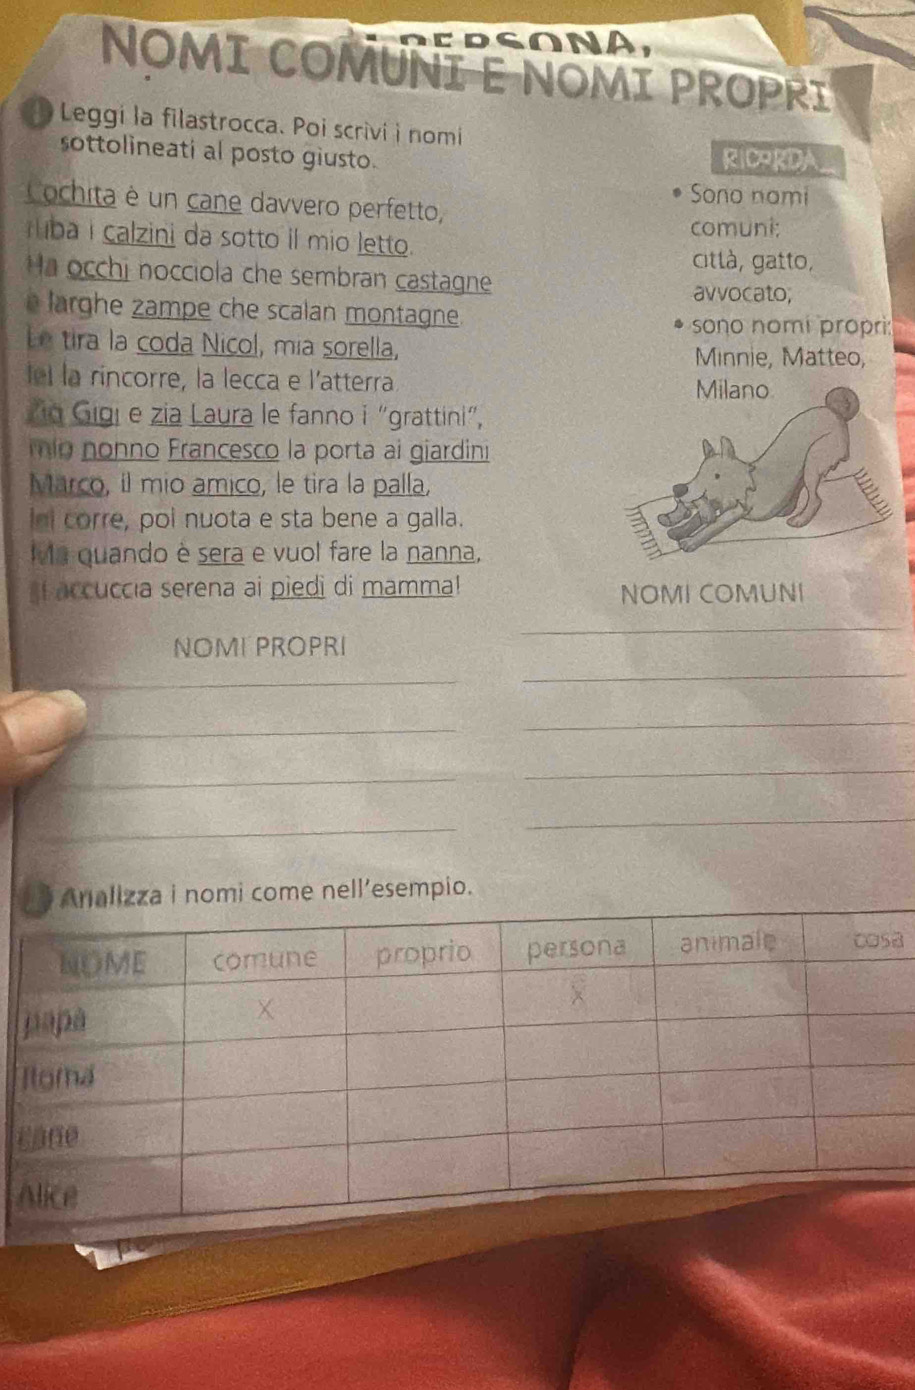 PERSONA,
NOMI COMUNI E NOMI PROPRI
Leggi la filastrocca. Poi scrivi i nomi
sottolineati al posto giusto.
Cochita è un cane davvero perfetto,
ruba i calzini da sotto il mio letto.
Ha occhi nocciola che sembran castagne
e larghe zampe che scalan montagne.
Le tira la coda Nicol, mia sorella,
lei la rincorre, la lecca e l'atterra
Zio Gigi e zia Laura le fanno i "grattini",
mio nonno Francesco la porta ai giardini
Marco, il mio amico, le tira la palla,
lei corre, poi nuota e sta bene a galla.
Ma quando è sera e vuol fare la nanna,
si accuccia serena ai piedi di mamma!
RICORDA...
• Sono nomi
comuni:
città, gatto,
avvocato;
• sono nomi propri:
Minnie, Matteo,
Milano
NOMI PROPRI
NOMI COMUNI
Analizza i nomi come nell'esempio.
NOME comune proprio persona animale cosa
papà X X
Roma
cane
Alice